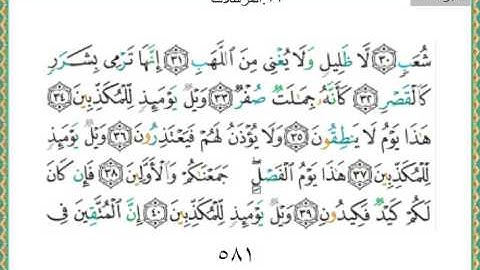 ٧٧ .المرسلات
شُعَبٍ ﴿٣٠﴾ لَّا ظَلِيلٍ وَلَا يُغْنِى مِنَ ٱللَّهَبِ ﴿٣١﴾ إِنَّهَا تَرْمِى بِشَرَرٍ
كَٱلْقَصْرِ ﴿٣٢﴾ كَأَنَّهُۥ جِمَـٰلَتٌ صُفْرٌ ﴿٣٣﴾ وَيْلٌ يَوْمَئِذٍ لِّلْمُكَذِّبِينَ ﴿٣٤﴾
هَـٰذَا يَوْمُ لَا يَنطِقُونَ ﴿٣٥﴾ وَلَا يُؤْذَنُ لَهُمْ فَيَعْتَذِرُونَ ﴿٣٦﴾ وَيْلٌ يَوْمَئِذٍ
لِّلْمُكَذِّبِينَ ﴿٣٧﴾ هَـٰذَا يَوْمُ ٱلْفَصْلِ ۖ جَمَعْنَـٰكُمْ وَٱلْأَوَّلِينَ ﴿٣٨﴾ فَإِن كَانَ
لَكُمْ كَيْدٌ فَكِيدُونِ ﴿٣٩﴾ وَيْلٌ يَوْمَئِذٍ لِّلْمُكَذِّبِينَ ﴿٤٠﴾ إِنَّ ٱلْمُتَّقِينَ فِى
٥٨١